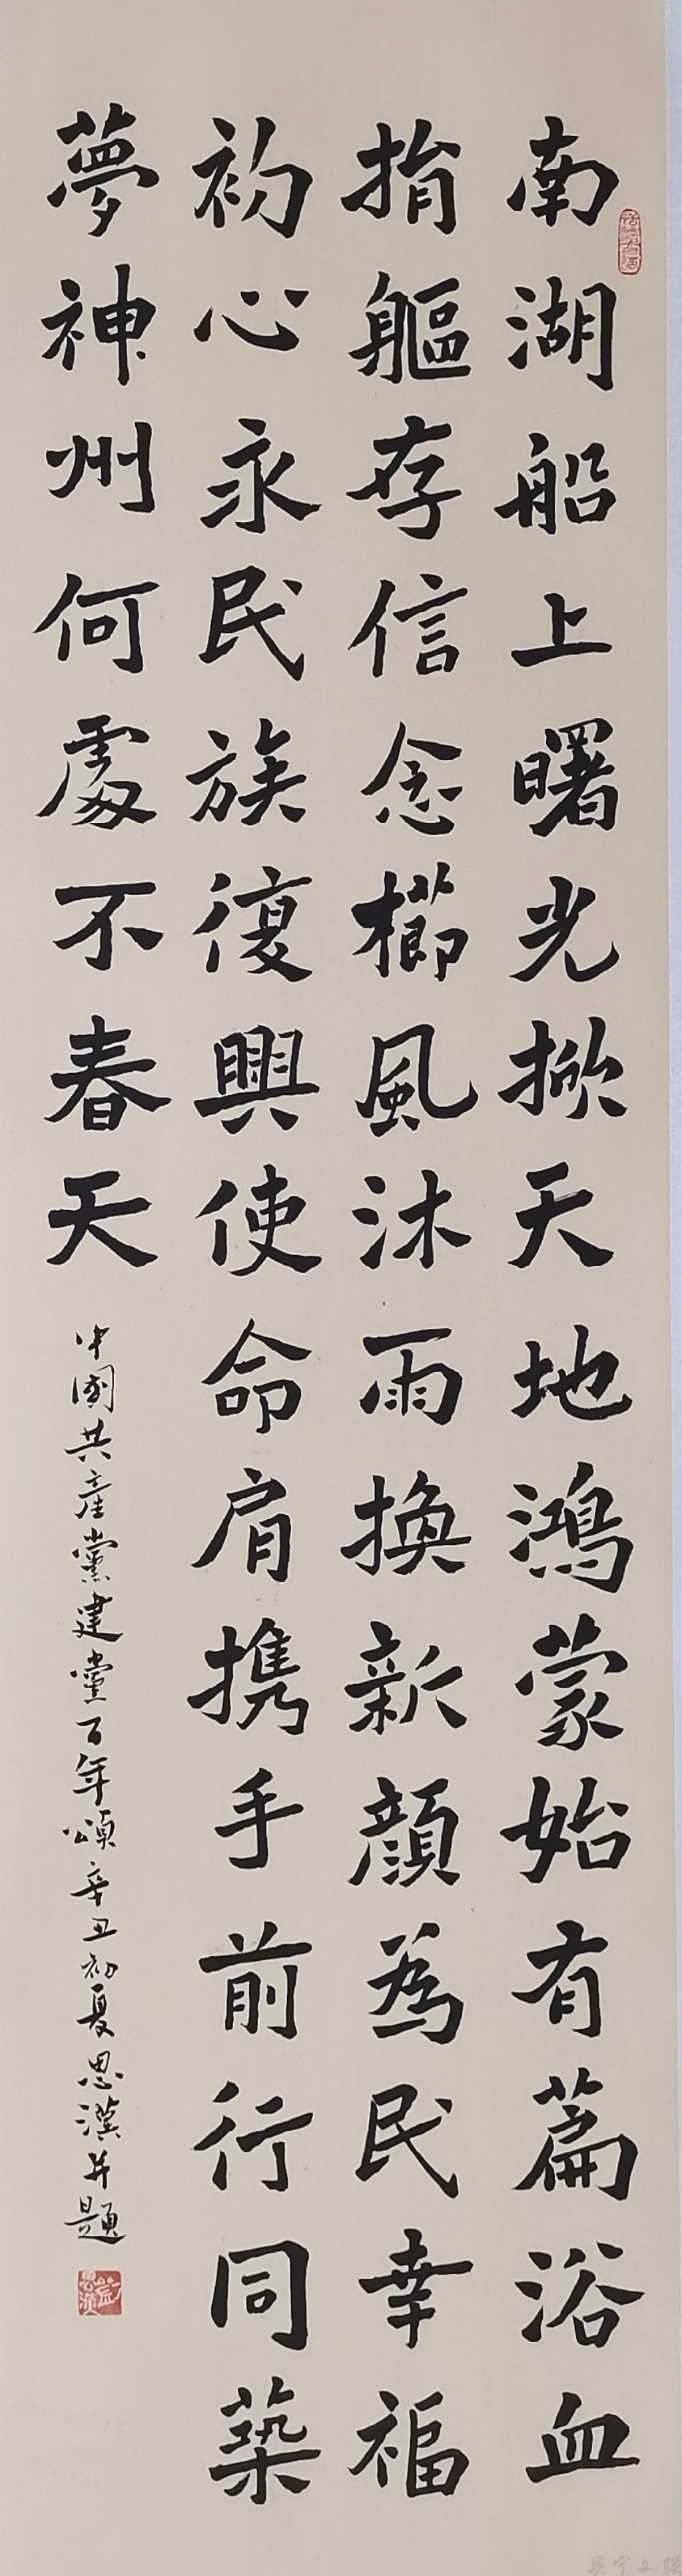 南湖船上曙光掀天地鴻蒙始有篇浴血
捐軀存信念櫛風沐雨換新顔為民幸福
初心永民族復興使命肩携手前行同築
夢神州何處不春天
中國共產黨建黨百年頌辛丑初夏思漢并題
興宁文联